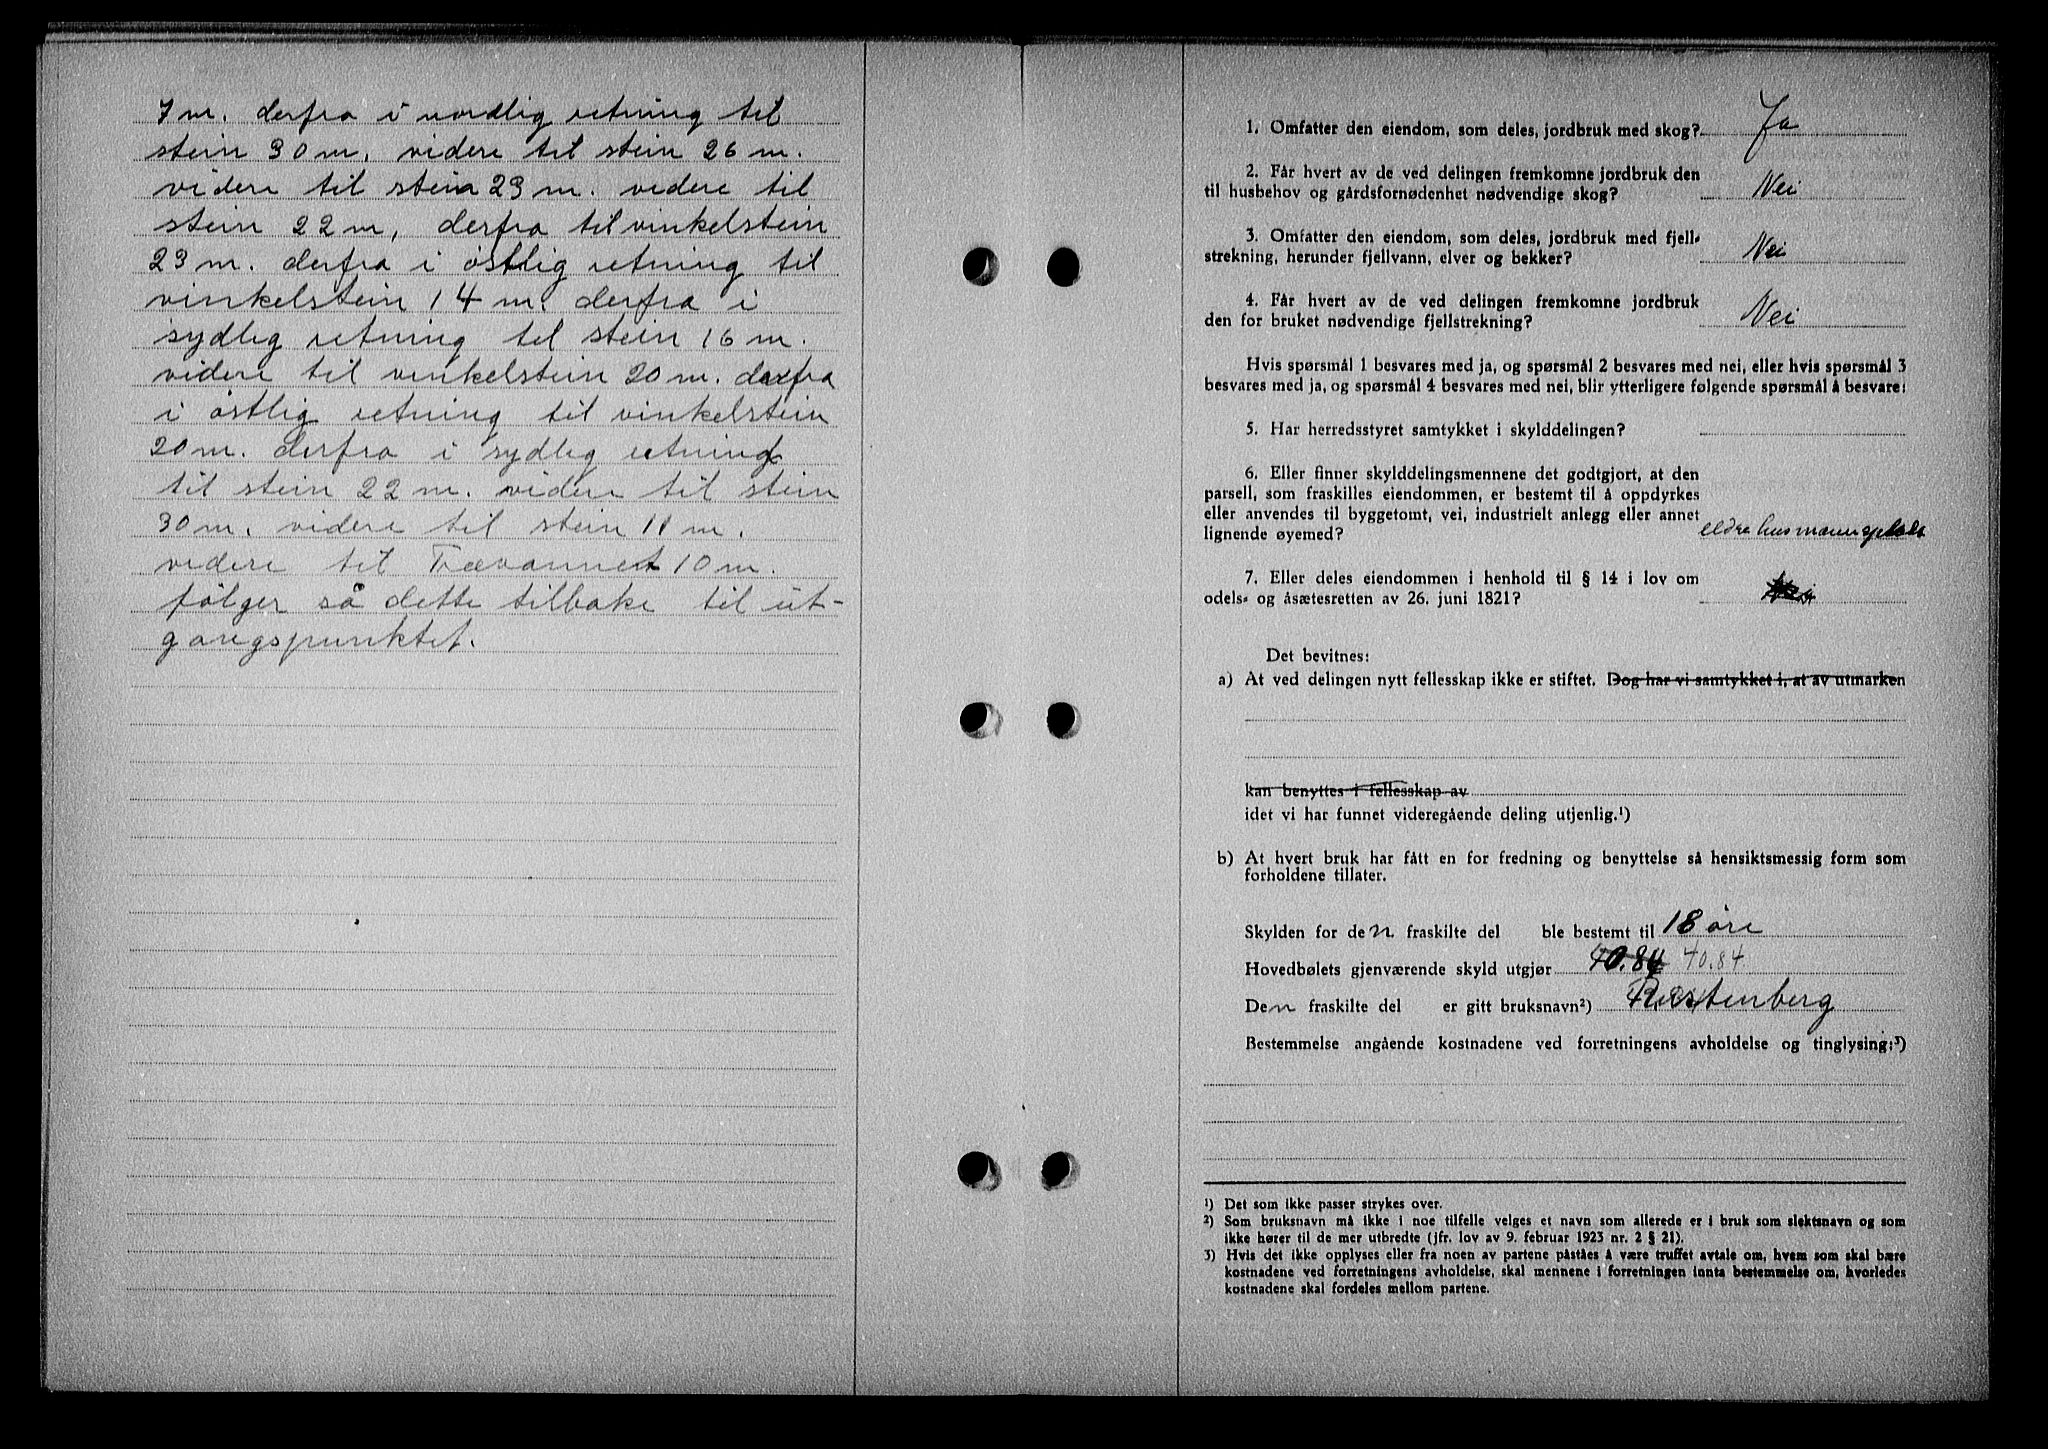 7 m. derfra i nordlig retning til
stein 30 m. videre til stein 26 m.
videre til stein 23 m. videre til
stein 22 m, derfra til vinkelstein
23 m. derfra i østlig retning til
vinkelstein 14 m. derfra i
sydlig retning til stein 16 m.
videre til vinkelstein 20 m. derfra
i østlig retning til vinkelstein
20 m. derfra i sydlig retning
til stein 22 m. videre til stein
30 m. videre til stein 11 m.
videre til Trævannet 10 m.
følger så dette tilbake til ut-
gangspunktet.
1. Omfatter den eiendom, som deles, jordbruk med skog? Ja
2. Får hvert av de ved delingen fremkomne jordbruk den
til husbehov og gårdsfornødenhet nødvendige skog? Nei
3. Omfatter den eiendom, som deles, jordbruk med fjell-
strekning, herunder fjellvann, elver og bekker? Nei
4. Får hvert av de ved delingen fremkomne jordbruk
den for bruket nødvendige fjellstrekning? Nei
Hvis spørsmål 1 besvares med ja, og spørsmål 2 besvares med nei, eller hvis spørsmål 3
besvares med ja, og spørsmål 4 besvares med nei, blir ytterligere følgende spørsmål å besvare:
5. Har herredsstyret samtykket i skylddelingen?
6. Eller finner skylddelingsmennene det godtgjort, at den
parsell, som fraskilles eiendommen, er bestemt til å oppdyrkes
eller anvendes til byggetomt, vei, industrielt anlegg eller annet
lignende øyemed? eldre husmannsplads
7. Eller deles eiendommen i henhold til § 14 i lov om
odels- og åsætesretten av 26. juni 1821? Nei
Det bevitnes:
a) At ved delingen nytt fellesskap ikke er stiftet. Dog har vi samtykket i, at av utmarken
kan benyttes i fellesskap av
idet vi har funnet videregående deling utjenlig.¹)
b) At hvert bruk har fått en for fredning og benyttelse så hensiktsmessig form som
forholdene tillater.
Skylden for den fraskilte del ble bestemt til 18 øre
Hovedbølets gjenværende skyld utgjør 40.84 40.84
Den fraskilte del er gitt bruksnavn²) Restenberg
Bestemmelse angående kostnadene ved forretningens avholdelse og tinglysing:³)
¹) Det som ikke passer strykes over.
²) Som bruksnavn må ikke i noe tilfelle velges et navn som allerede er i bruk som slektsnavn og som
ikke hører til de mer utbredte (jfr. lov av 9. februar 1923 nr. 2 § 21).
3) Hvis det ikke opplyses eller fra noen av partene påståes å være truffet avtale om, hvem som skal bære
kostnadene ved forretningens avholdelse, skal mennene i forretningen innta bestemmelse om, hvorledes
kostnadene skal fordeles mellom partene.